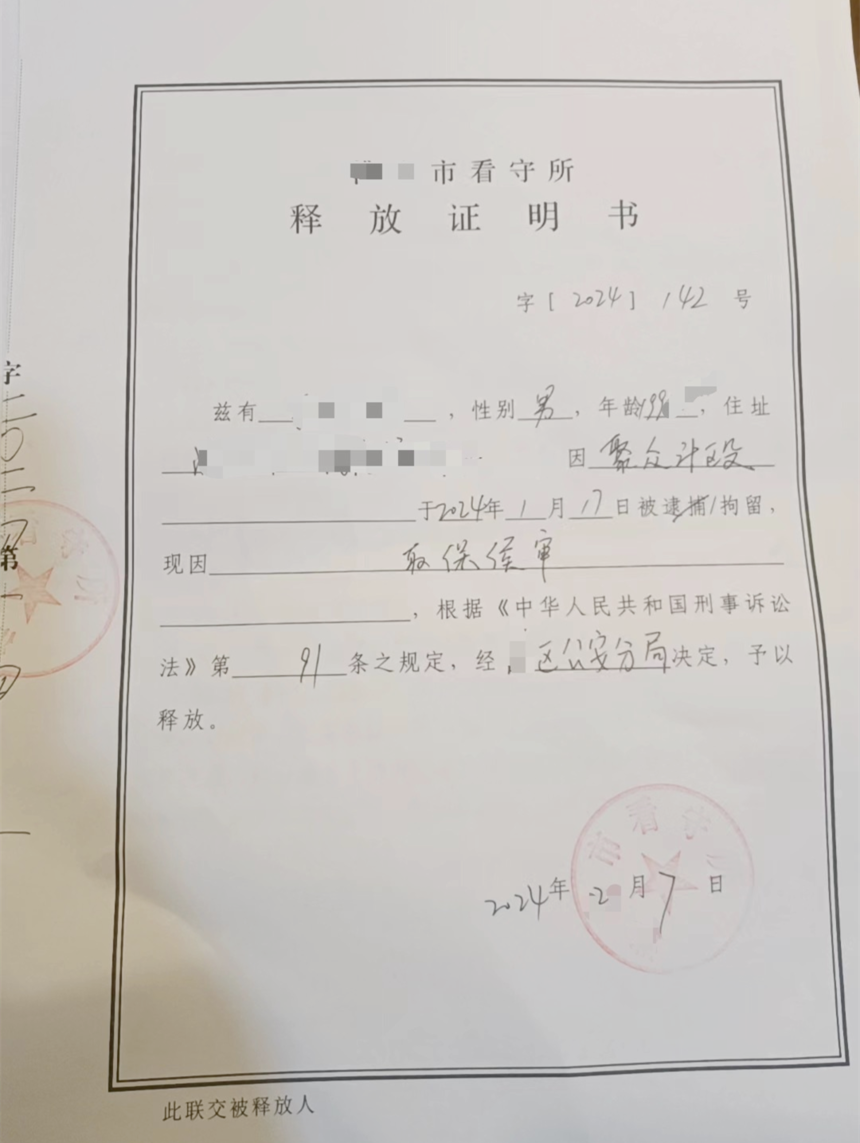 市看守所
释放证明书
字[2024]142号
兹有 ，性别男，年龄199 ，住址
因聚众斗殴
于2024年1月17日被逮捕/拘留，
现因取保侯审
，根据《中华人民共和国刑事诉讼
法》第91条之规定，经 区公安分局决定，予以
释放。
2024年2月7日
此联交被释放人
字
二
〇
二
第
一